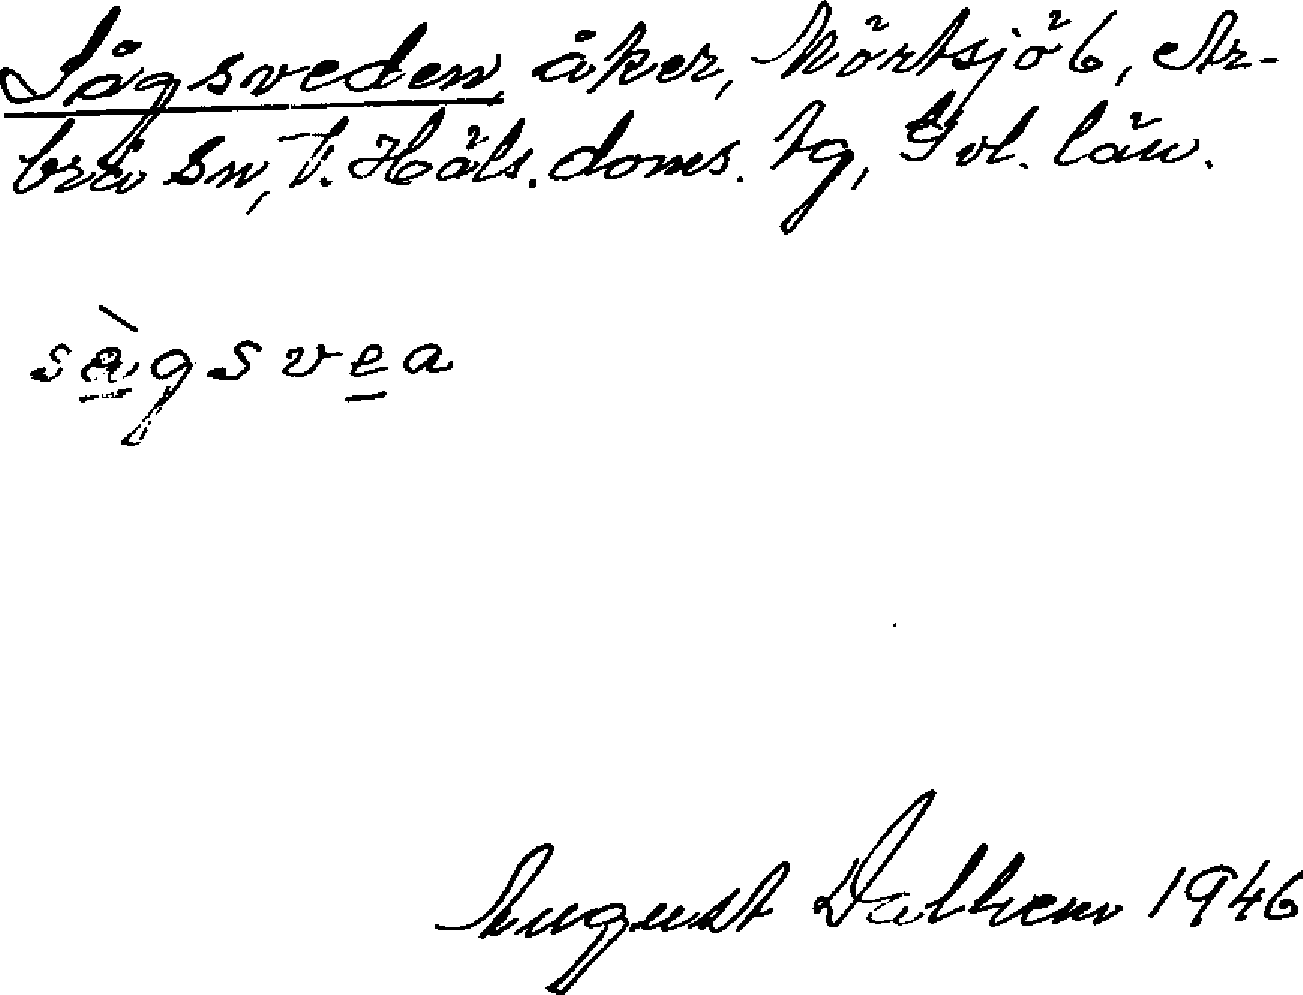 Sågsveden, åker, Mörtsjö b, Ar-
brå sn, V. Häls. doms. tg, Gvl. län.
sàgsvea
August Dalhem 1946